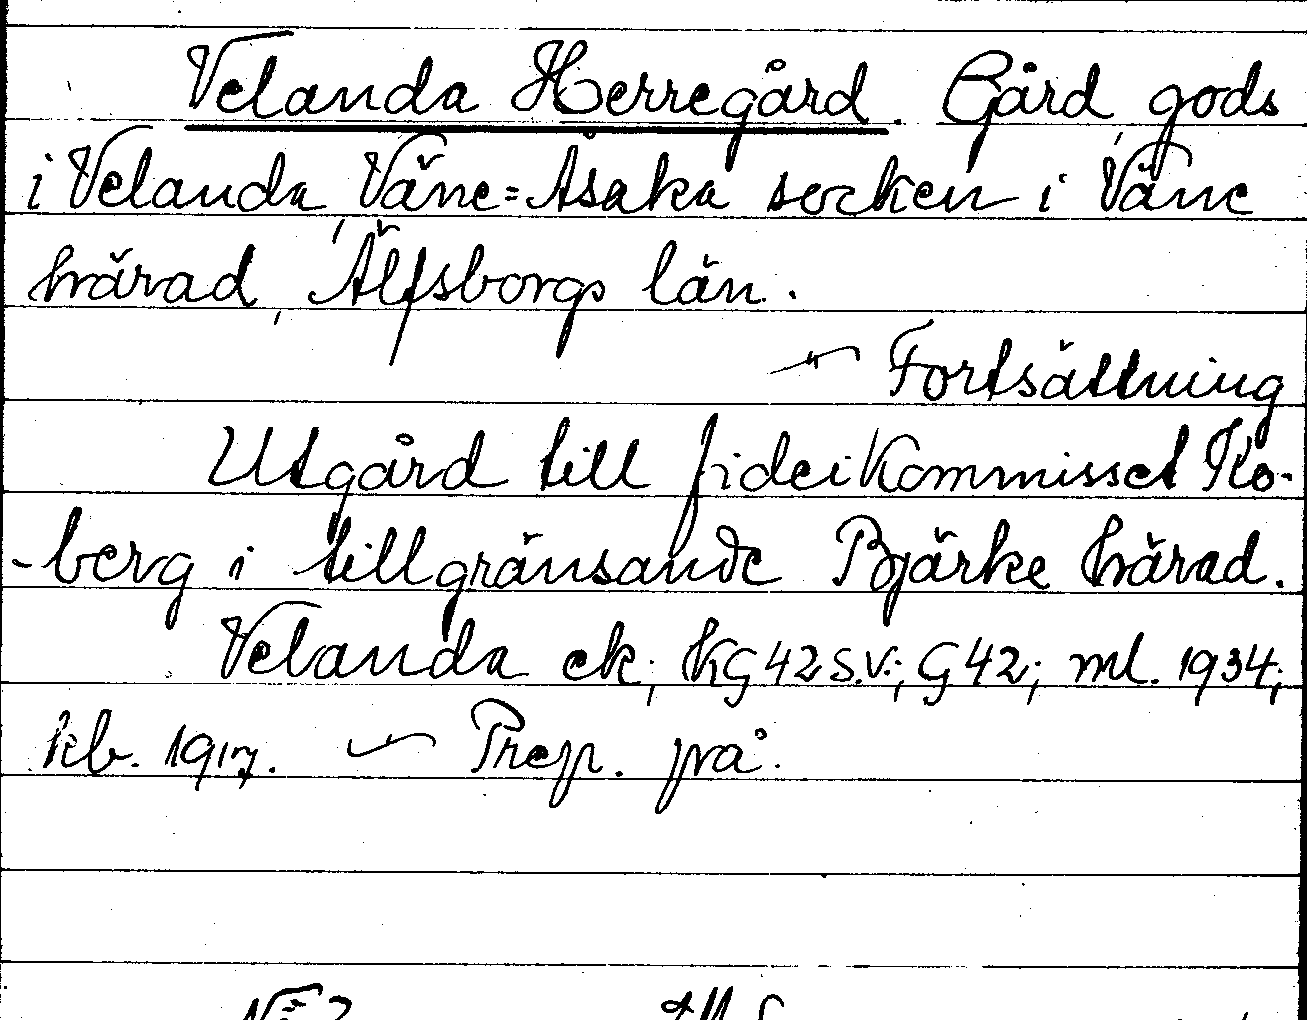 Velanda Herregård. Gård, gods
i Velanda, Väne=Åsaka socken i Väne
härad, Älfsborgs län.
~"~ Fortsättning
Utgård till fideikommisset Ko-
-berg i tillgränsande Bjärke härad.
Velanda ek; KG42S.V.; G42; ml. 1934;
kb. 1917. ~ Prep. på.